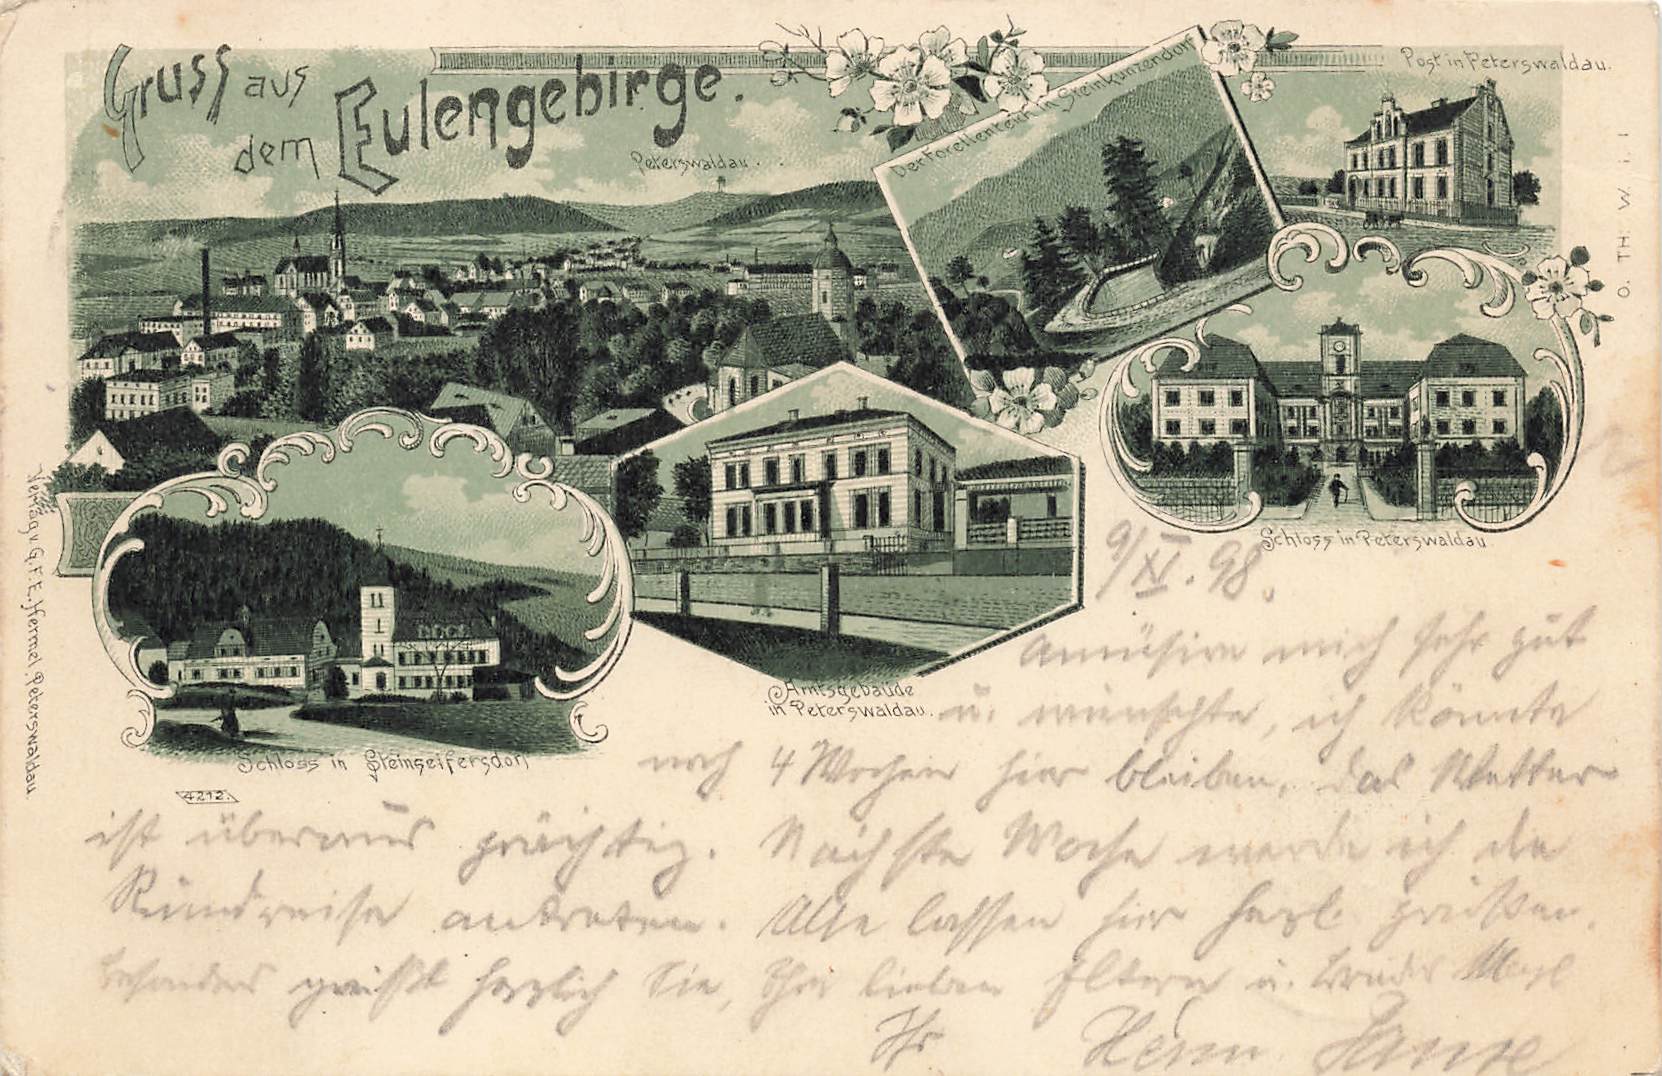 Gruss aus
dem Eulengebirge.
Peterswaldau.
Der Forellenteich in Steinkunzendorf
Post in Peterswaldau.
Schloss in Peterswaldau.
Amtsgebäude
in Peterswaldau.
Schloss in Steinseifersdorf
4212.
Verlag v. G.F.E. Hermel, Peterswaldau.
O. TH. W. i. l
9/XI. 98.
Amüsire mich sehr gut
u. wünschte, ich könnte
noch 4 Wochen hier bleiben, das Wetter
ist überaus prächtig. Nächste Woche werde ich die
Rundreise antreten. Alle lassen hier herzl. grüßen.
besonders grüßt herzlich Sie, Ihre lieben Eltern u. Bruder
Ihr Herm.